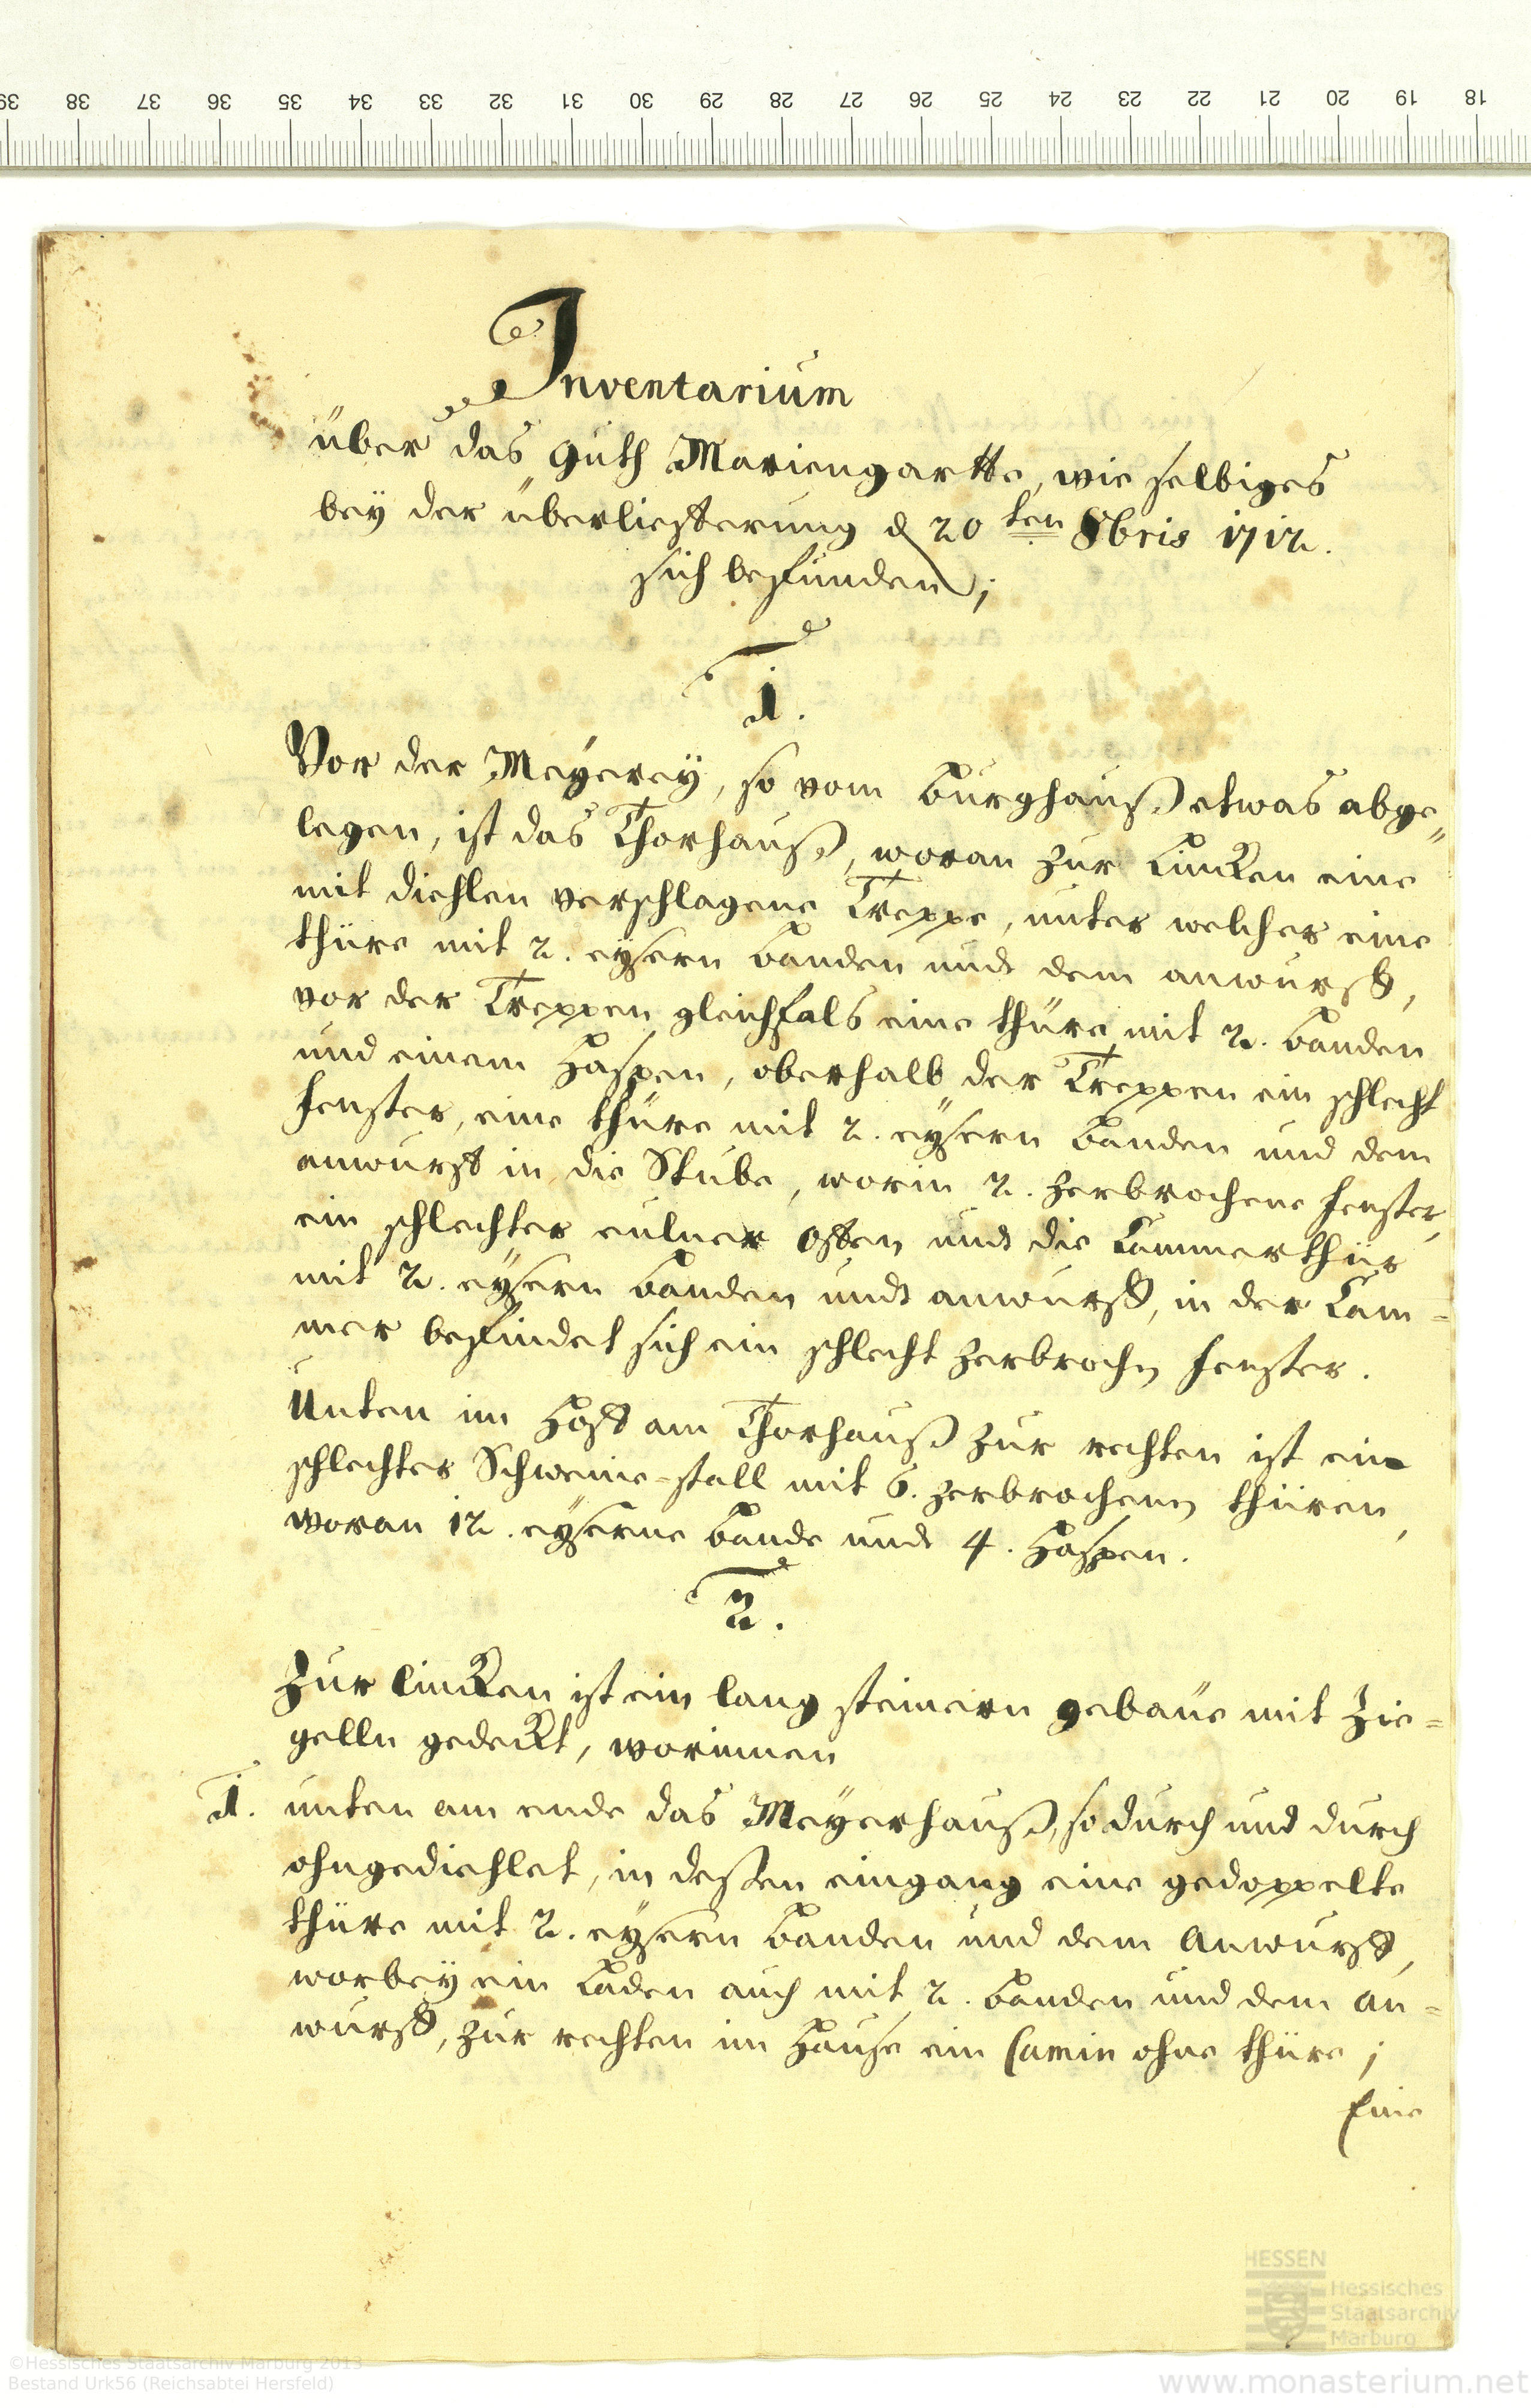 39 38 37 36 35 34 33 32 31 30 29 28 27 26 25 24 23 22 21 20 19 18
Inventarium
über das guth Mariengartte, wie selbiges
bey der überliefferung d 20ten 8bris 1712.
sich befunden;
1.
Vor der Meyerey, so vom Burghauß etwas abge„
legen, ist das Thorhauß, woran zur Lincken eine
mit diehlen verschlagene Treppe, unter welcher eine
thüre mit 2. eysern Banden undt dem anwurff,
vor der Treppen gleichfals eine thüre mit 2. Banden
und einem Haspen, oberhalb der Treppen ein schlecht
fenster, eine thüre mit 2. eysern Banden und dem
anwurff in die Stube, worin 2. zerbrochene fenster,
ein schlechter eulner offen undt die Cammerthür
mit 2. eysern Banden undt anwurff, in der Cam=
mer befindet sich ein schlecht zerbrochn fenster.
Unten im Hoff am Thorhauß zur rechten ist ein
schlechter Schweine-stall mit 6. zerbrochenen thüren,
woran 12. eyserne Bande undt 4. Haspen.
2.
Zur lincken ist ein lang steinern gebäue mit Zie=
gelln gedeckt, worinnen
1. unten am ende das Meyerhauß, so durch und durch
ohngediehlet, in deßen eingang eine gedoppelte
thüre mit 2. eysern Banden und dem Anwurff,
worbey ein Laden auch mit 2. Banden und dem an=
wurff, zur rechten im Hause ein Camin ohne thüre;
Eine
HESSEN
Hessisches
Staatsarchiv
Marburg
©Hessisches Staatsarchiv Marburg 2013
Bestand Urk56 (Reichsabtei Hersfeld)
www.monasterium.net